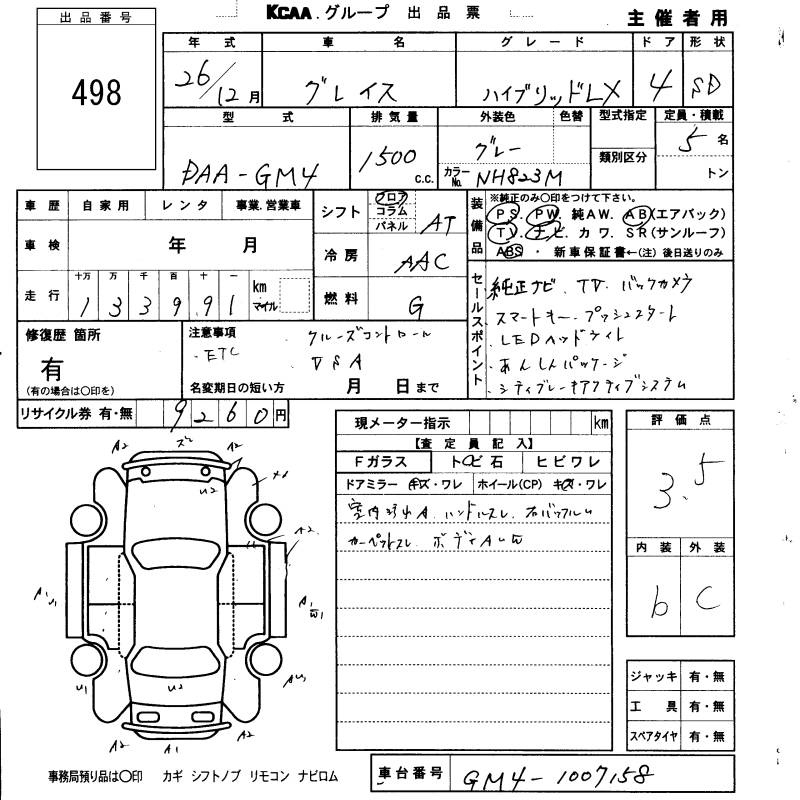 KCAA.グループ 出品票 主催者用
出品番号
498
年式 車名 グレード ドア 形状
26/12月 グレイス ハイブリッドLX 4 SD
型式 排気量 外装色 色替 型式指定 定員・積載
DAA-GM4 1500 c.c. グレー 類別区分 5名
カラーNo. NH823M トン
車歴 自家用 レンタ 事業.営業車
車検 年 月
走行 十万 万 千 百 十 一 km マイル
1 3 3 9 9 1
シフト フロア コラム パネル AT
冷房 AAC
燃料 G
装備品 ※純正のみ〇印をつけて下さい。
PS. PW. 純AW. AB(エアバック)
TV. ナビ. カワ. SR(サンルーフ)
ABS ・ 新車保証書←(注)後日送りのみ
セールスポイント
純正ナビ. TV. バックカメラ
・スマートキー. プッシュスタート
・LEDヘッドライト
・あんしんパッケージ
・シティブレーキアクティブシステム
修復歴 箇所
有
(有の場合は〇印を)
注意事項 クルーズコントロール
・ETC VSA
名変期日の短い方 月 日まで
リサイクル券 有・無 9260円
現メーター指示 km
【査定員記入】
Fガラス トビ石 ヒビワレ
ドアミラー キズ・ワレ ホイール(CP) キズ・ワレ
カーペットスレ ボディAUW
評価点
3.5
内装 外装
b C
ジャッキ 有・無
工具 有・無
スペアタイヤ 有・無
A2 A2
U2
A2
A1 U1 A1 W1
U1 U2
A2 A1 A2
事務局預り品は〇印 カギ シフトノブ リモコン ナビロム
車台番号 GM4-1007158